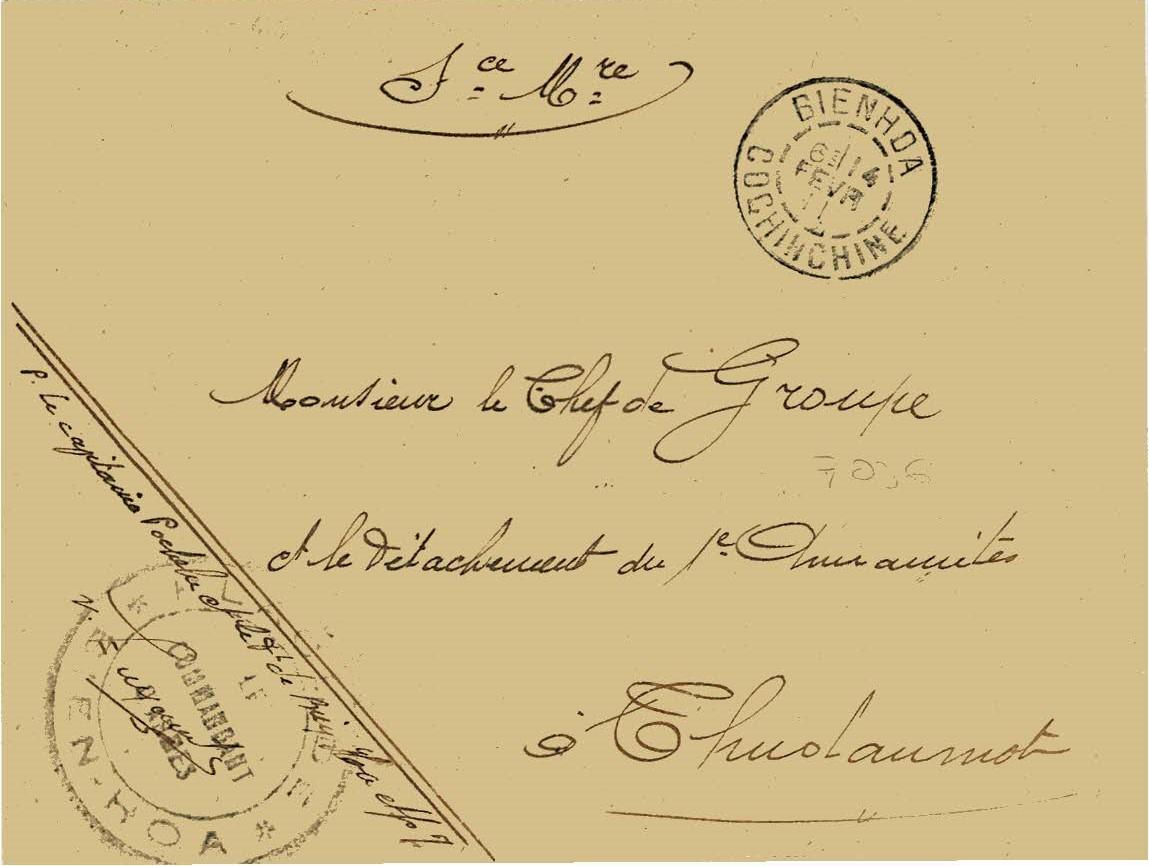 Sce Mre
BIENHOA
6E/14
FEVR
11
COCHINCHINE
Monsieur le Chef de Groupe
et le Détachement du 1e Annamites
à Thudaumot
P. le capitaine
LE
COMMANDANT
BIEN-HOA